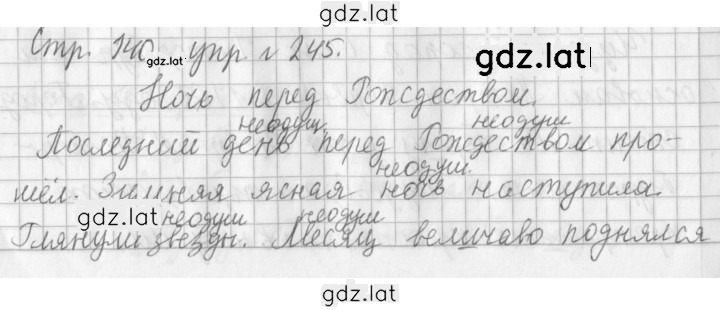 gdz.lat
Стр. 140 упр. № 245.
gdz.lat
gdz.lat
Ночь перед Рождеством.
неодуш. неодуш
Последний день перед Рождеством про-
неодуш.
шёл. Зимняя ясная ночь наступила.
gdz.lat неодуш неодуш
Глянули звезды. Месяц величаво поднялся
gdz.lat